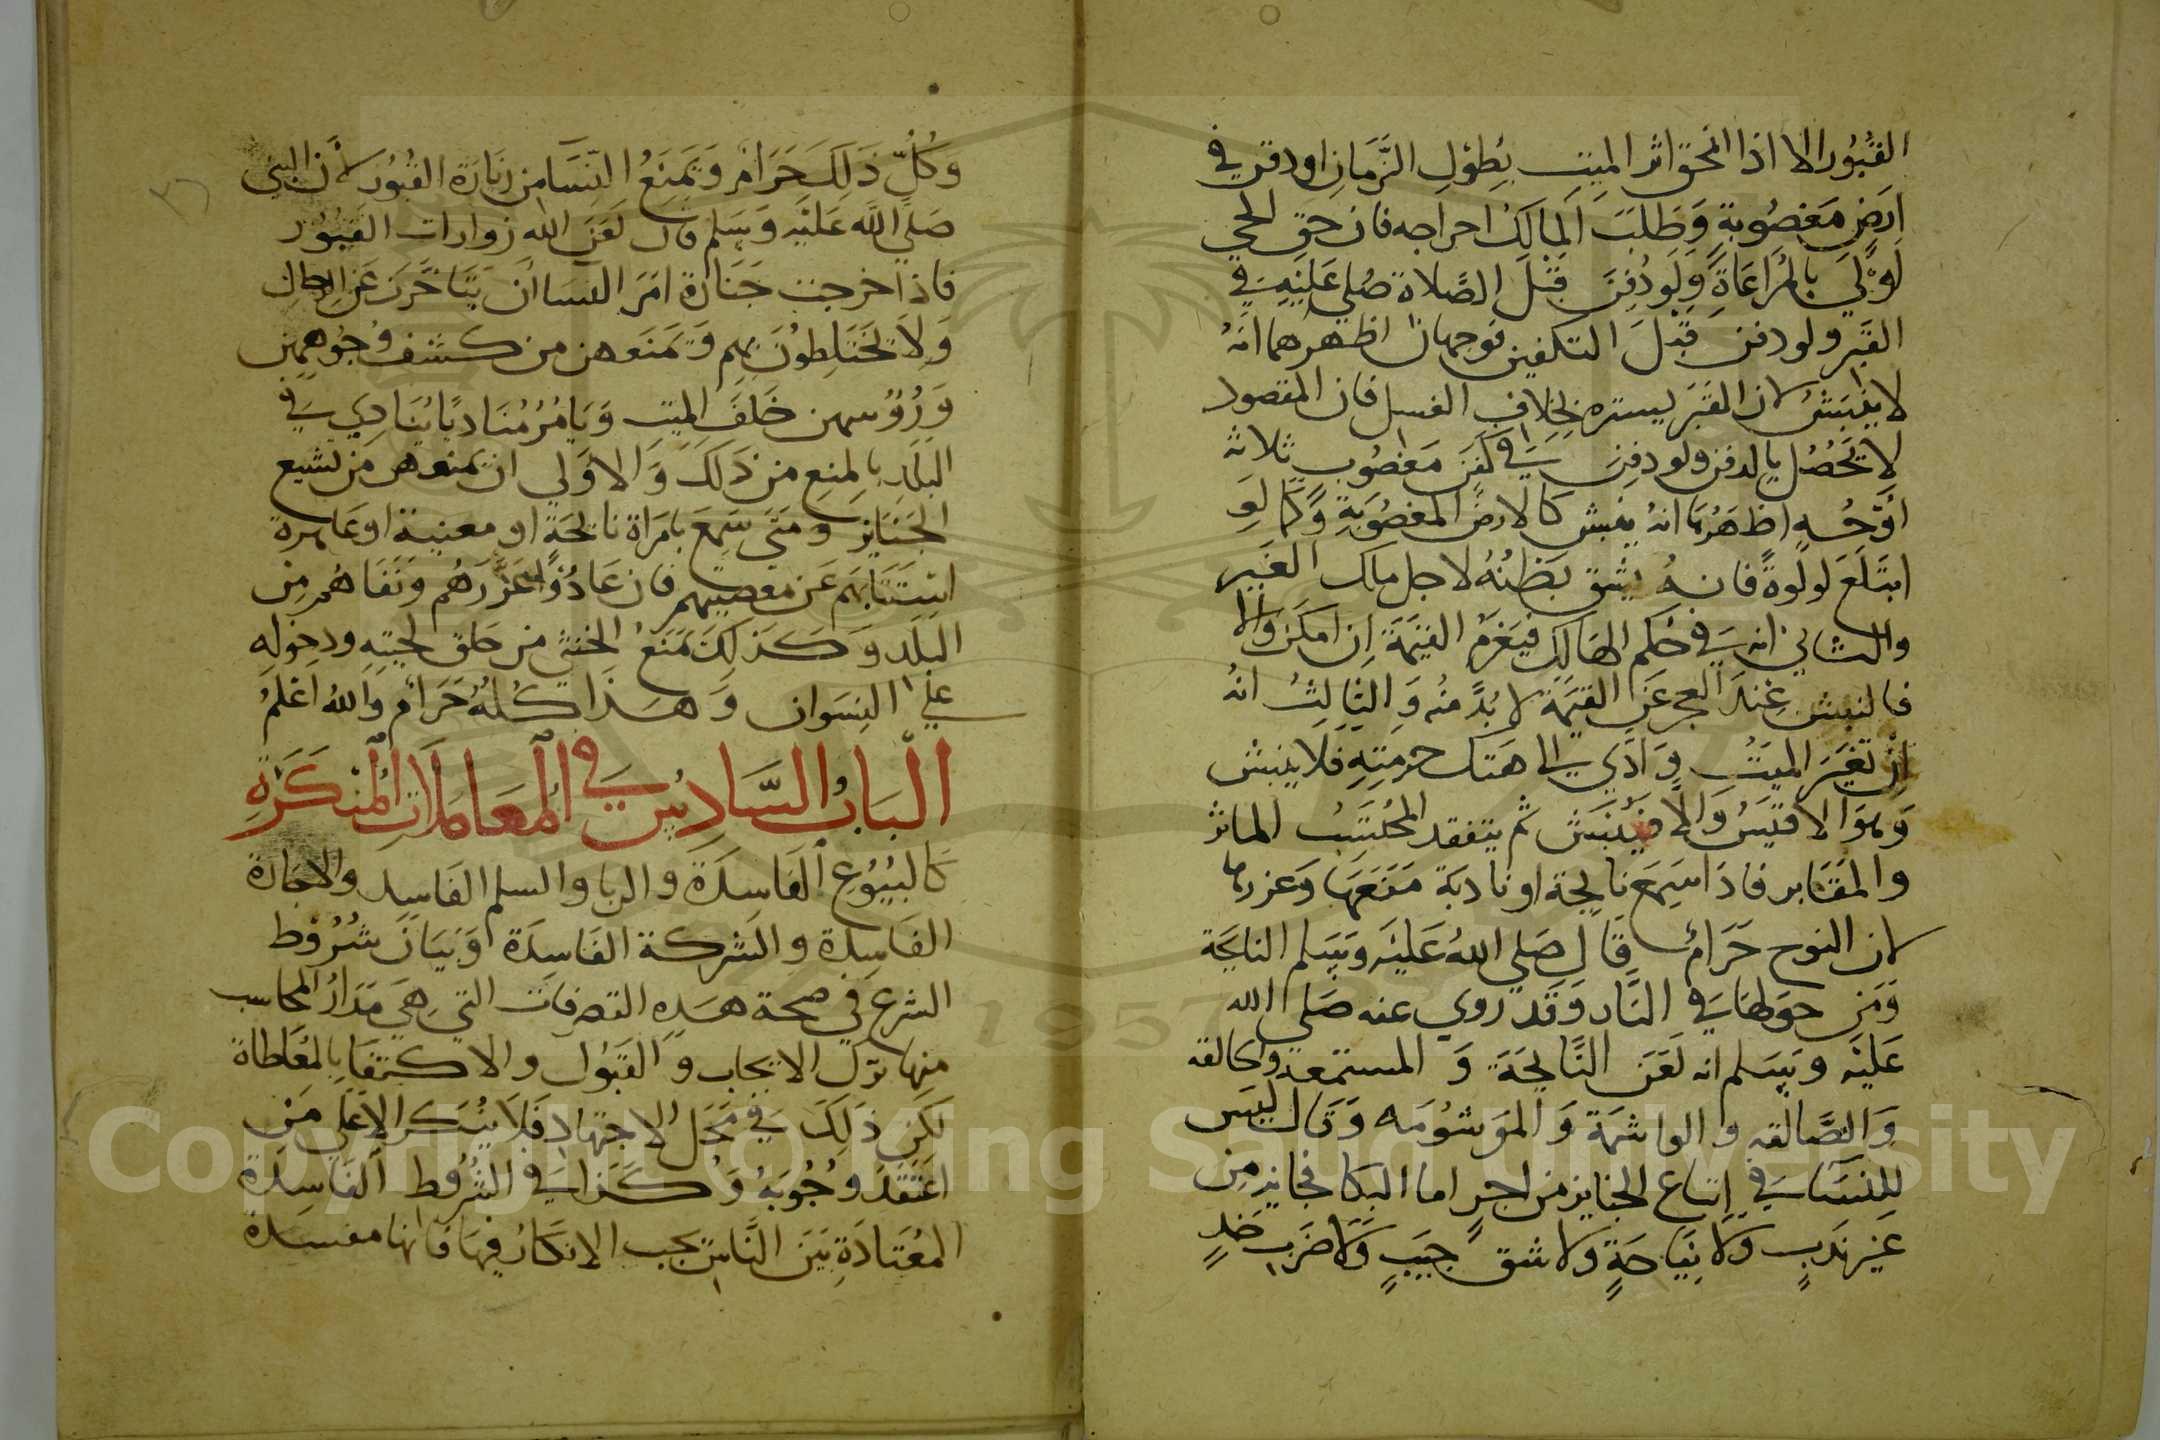 القبور الا اذا انمحق اثر الميت بطول الزمان او دفن في
ارض مغصوبة وطلب المالك اخراجه فان حق الحي
اولي بالمراعاة ولو دفن قبل الصلاة صلي عليه في
القبر ولو دفن قبل التكفين فوجهان اظهرهما انه
لا ينبش لان القبر يستره بخلاف الغسل فان المقصود
لا يحصل بالدفن ولو دفن في كفن مغصوب ثلاثة
اوجه اظهرها انه ينبش كالارض المغصوبة وكما لو
ابتلع لولوة فانه يشق بطنه لاجل ملك الغير
والثاني انه في حكم الهالك فيغرم القيمة ان امكن والا
فالنبش عند العجز عن القيمة لا بد منه والثالث انه
ان تغير الميت وادي الى هتك حرمته فلا ينبش
وهو الاقيس والا فينبش ثم يتفقد المحتسب الماتر
والمقابر فاذا سمع نايحة او نادبة منعها وعزرها
لان النوح حرام قال صلي الله عليه وسلم النايحة
ومن حولها في النار وقد روي عنه صلي الله
عليه وسلم انه لعن النايحة والمستمعة والحالقة
والصالقه والواشمة والموشومه وقال ليس
للنسا في اتباع الجنايز من اجر اما البكا فجايز من
غير ندب ولا نياحة ولا شق جيب ولا ضرب خد
وكل ذلك حرام وتمنع النسا من زيارة القبور لان النبي
صلي الله عليه وسلم قال لعن الله زوارات القبور
فاذا خرجت جنازة امر النسا ان يتاخرن عن الرجال
ولا تختلطون بهم وتمنعهن من كشف وجوههن
ورؤسهن خلف الميت ويامر مناديا ينادي في
البلد بالمنع من ذلك والاولي ان تمنعهن من تشيع
الجنايز ومتى سمع بامراة نايحة او مغنية او عاهرة
استتابهم عن معصيتهم فان عادوا عزرهم ونفاهم من
البلد وكذلك تمنع الخنثى من حلق لحيته ودخوله
علي النسوان وهذا كله حرام والله اعلم
الباب السادس في المعاملات المنكرة
كالبيوع الفاسدة والربا والسلم الفاسد والاجارة
الفاسدة والشركة الفاسدة وبيان شروط
الشرع في صحة هذه التصرفات التي هي مدار المكاسب
منها ترك الايجاب والقبول والاكتفا بالمعاطاة
لكن ذلك في محل الاجتهاد فلا ينكر الا علي من
اعتقد وجوبه وكذا في الشروط الفاسدة
المعتادة بين الناس يجب الانكار فيها فانها مفسدة
Copyright © King Saud University
1957